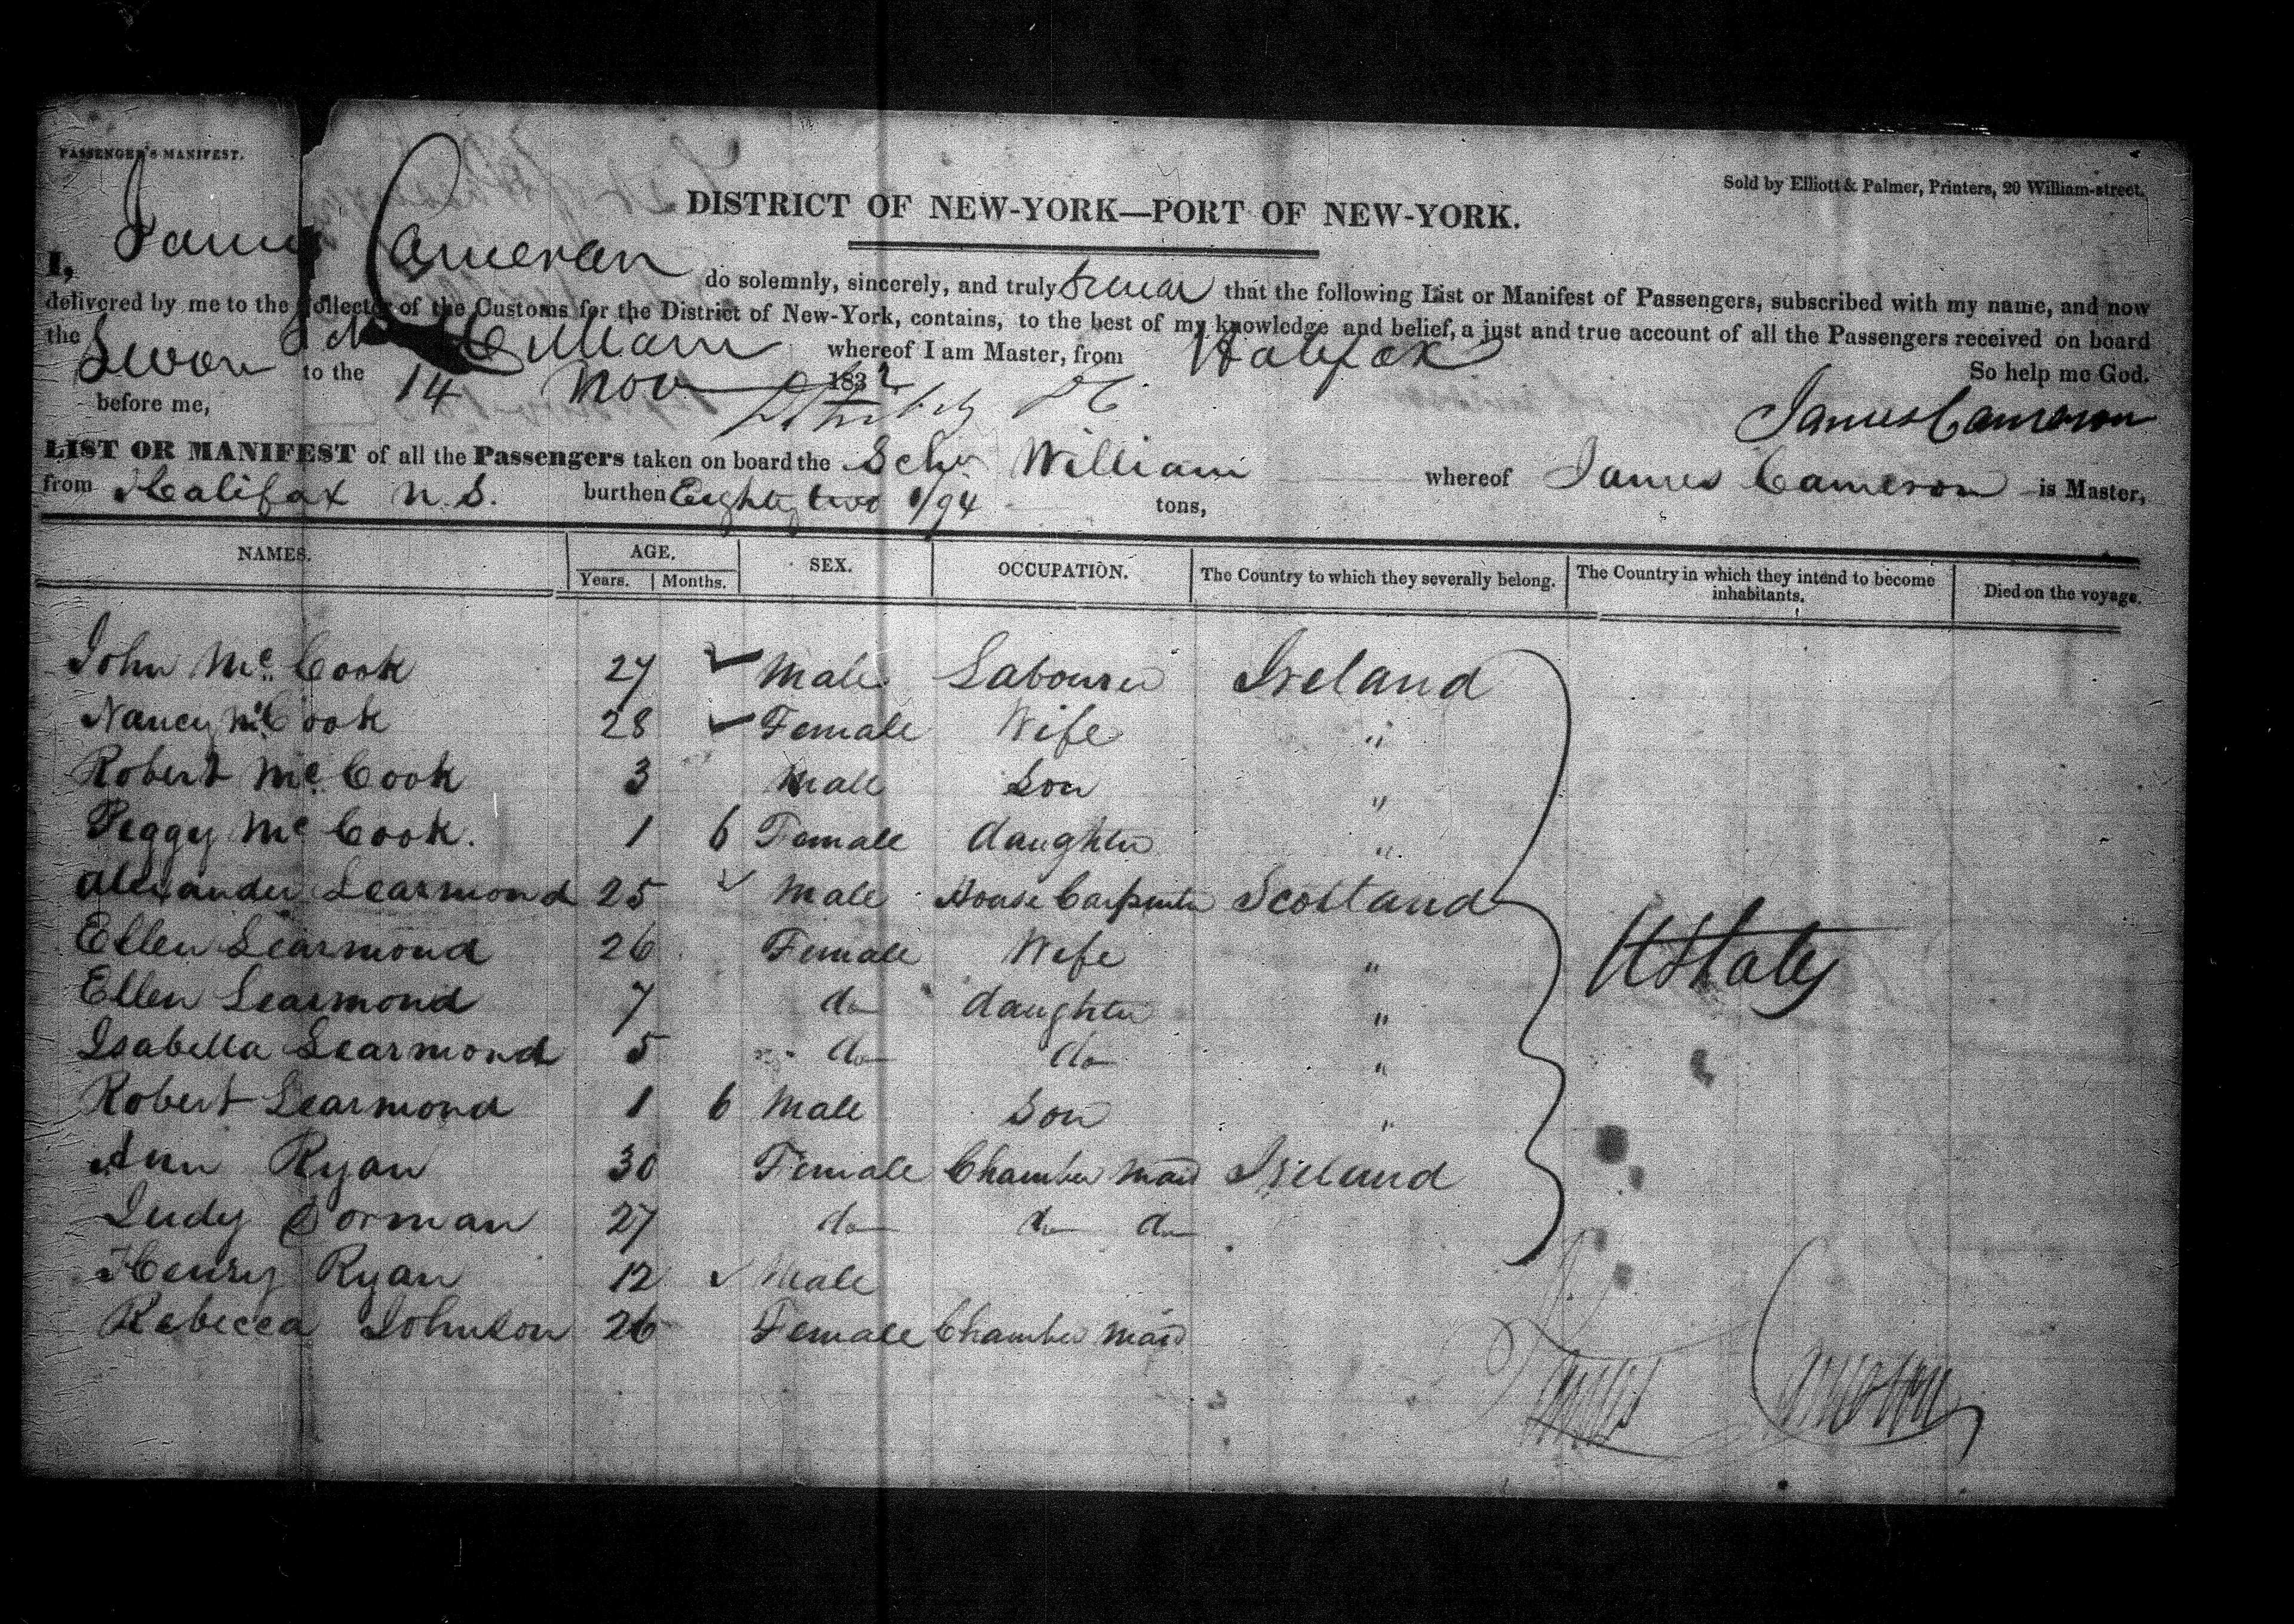 PASSENGER'S MANIFEST.
Sold by Elliott & Palmer, Printers, 20 William-street.
DISTRICT OF NEW-YORK—PORT OF NEW-YORK.
I, James Cameron do solemnly, sincerely, and truly swear that the following List or Manifest of Passengers, subscribed with my name, and now
delivered by me to the Collector of the Customs for the District of New-York, contains, to the best of my knowledge and belief, a just and true account of all the Passengers received on board
the Schr William whereof I am Master, from Halifax
So help me God.
Sworn to the 14 Nov 1832
before me,
James Cameron
LIST OR MANIFEST of all the Passengers taken on board the Schr William whereof James Cameron is Master,
from Halifax N.S. burthen Eighty two /94 tons,
NAMES. AGE. SEX. OCCUPATION. The Country to which they severally belong. The Country in which they intend to become inhabitants. Died on the voyage.
Years. Months.
John Mc Cook 27 Male Labourer Ireland
Nancy McCook 28 Female Wife "
Robert Mc Cook 3 Male Son "
Peggy Mc Cook. 1 6 Female daughter "
Alexander Learmond 25 Male House Carpenter Scotland
Ellen Learmond 26 Female Wife " U States
Ellen Learmond 7 do daughter "
Isabella Learmond 5 do do "
Robert Learmond 1 6 Male Son "
Ann Ryan 30 Female Chamber maid Ireland
Judy Dorman 27 do do do
Henry Ryan 12 Male
Rebecca Johnson 26 Female Chamber maid
James Cameron